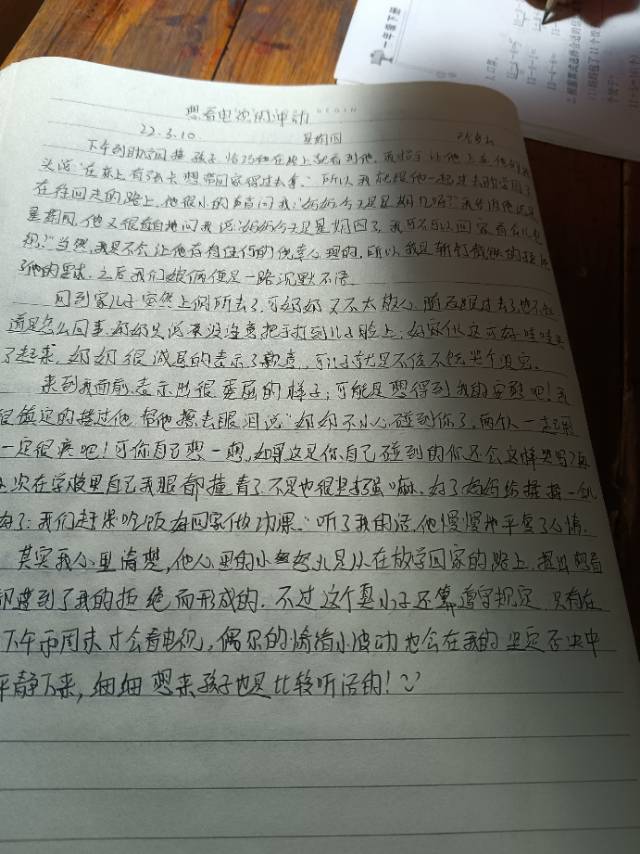 一年级下册
1.口算。
BEGIN
想看电视的冲动
22.3.10 星期四
下午到助学园接孩子,恰巧在路上就看到他,
头说:"在桌上有张卡想带回家得过去拿。"所以我就跟他一起过去助学园了
在往回走的路上,他很小的声音问我:"妈妈今天是星期几呢?"我
星期四,他又很直白地问我说:"妈妈今天是星期四了,我可不可以回家看会儿电
视?"当然,我是不会让他存有任何的侥幸心理的,所以我是斩钉截铁的拒绝
了他的要求,之后我们娘俩便是一路沉默不语。
回到家儿子突然上厕所去了,可奶奶又不太放心,随后跟过去了他不知
道是怎么回事,奶奶先说来没注意把手打到儿子脸上,好家伙这可好哇哇哭
了起来,奶奶很诚恳的表示了歉意,可儿子就是不依不饶哭个没完。
来到我面前表示出很委屈的样子,可能是想得到我的安慰吧!我
很镇定的搂过他帮他擦去眼泪说:"奶奶不小心碰到你了,
一定很疼吧!可你自己想一想,如果这是你自己碰到的你还会这样哭吗?每
次在学校里自己我眼都撞青了不是也很坚强嘛,好了妈妈给揉揉一会儿
了,我们赶紧吃饭好回家做功课。"听了我的话,他慢慢地平复了心情。
其实我心里清楚,他心里的小委屈是从在放学回家的路上,提出想看
视遭到了我的拒绝而形成的。不过这个臭小子还算遵守规定,只有在
下午币周末才会看电视,偶尔的情绪小波动也会在我的坚定否决中
平静下来,细细想来孩子也是比较听话的!